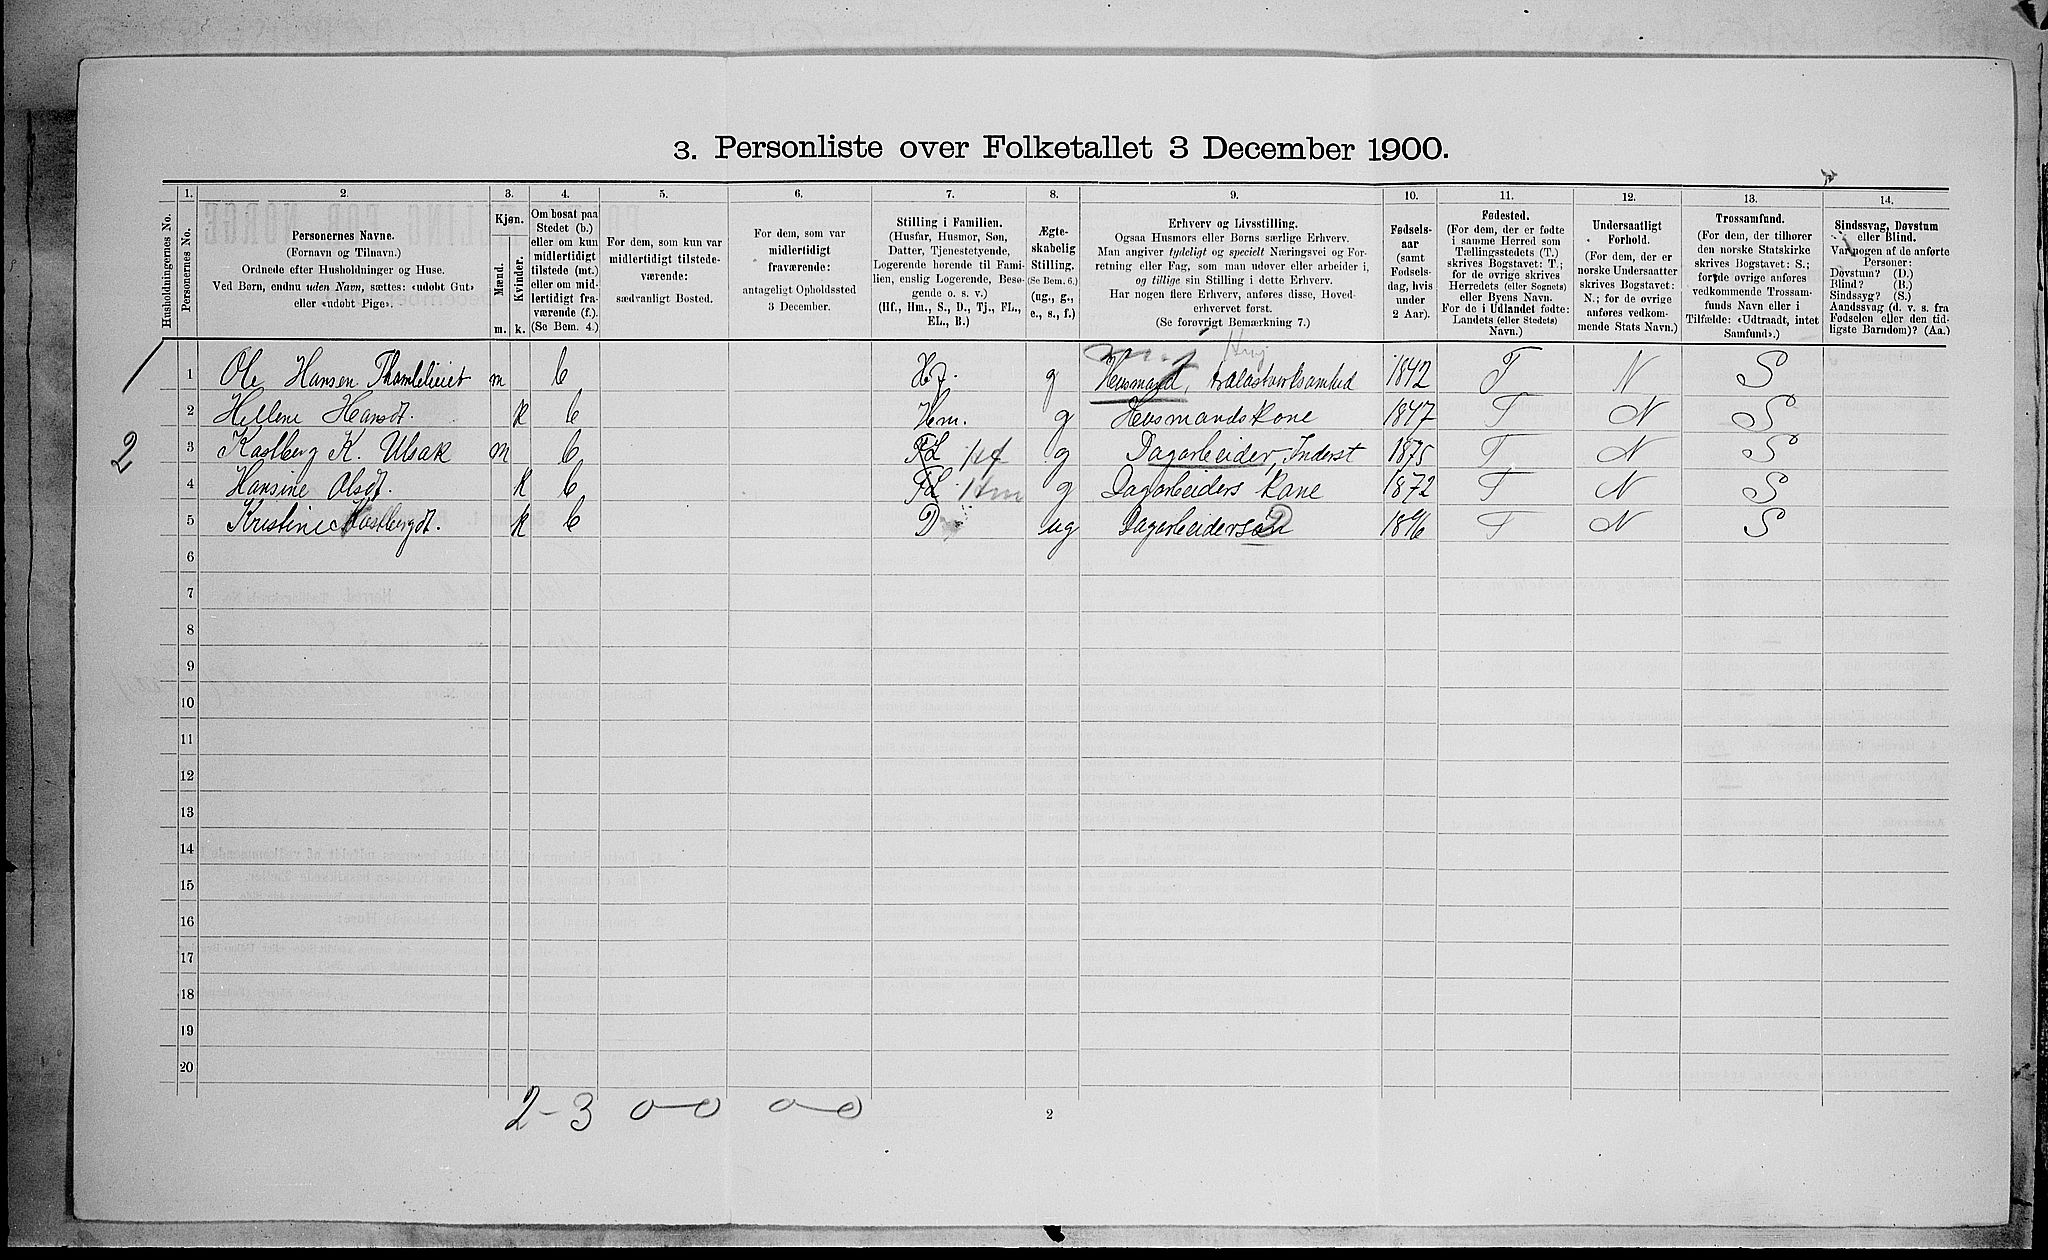 3. Personliste over Folketallet 3 December 1900.
Husholdningernes No.
1. Personernes No.
2. Personernes Navne.
(Fornavn og Tilnavn.)
Ordnede efter Husholdninger og Huse.
Ved Børn, endnu uden Navn, sættes: «udøbt Gut»
eller «udøbt Pige».
3. Kjøn.
Mænd. m.
Kvinder. k.
4. Om bosat paa
Stedet (b.)
eller om kun
midlertidigt
tilstede (mt.)
eller om mid-
lertidigt fra-
værende (f.).
(Se Bem. 4.)
5. For dem, som kun var
midlertidigt tilstede-
værende:
sædvanligt Bosted.
6. For dem, som var
midlertidigt
fraværende:
antageligt Opholdssted
3 December.
7. Stilling i Familien.
(Husfar, Husmor, Søn,
Datter, Tjenestetyende,
Logerende hørende til Fami-
lien, enslig Logerende, Besø-
gende o. s. v.)
(Hf., Hm., S., D., Tj., FL.,
EL., B.)
8. Ægte-
skabelig
Stilling.
(Se Bem. 6.)
(ug., g.,
e., s., f.)
9. Erhverv og Livsstilling.
Ogsaa Husmors eller Børns særlige Erhverv.
Man angiver tydeligt og specielt Næringsvei og For-
retning eller Fag, som man udøver eller arbeider i,
og tillige sin Stilling i dette Erhverv.
Har nogen flere Erhverv, anføres disse, Hoved-
erhvervet først.
(Se forøvrigt Bemærkning 7.)
10. Fødsels-
aar
(samt
Fødsels-
dag, hvis
under
2 Aar).
11. Fødested.
(For dem, der er fødte
i samme Herred som
Tællingsstedets (T.)
skrives Bogstavet: T.;
for de øvrige skrives
Herredets (eller Sognets)
eller Byens Navn.
For de i Udlandet fødte:
Landets (eller Stedets)
Navn.)
12. Undersaatligt
Forhold.
(For dem, der er
norske Undersaatter
skrives Bogstavet:
N.; for de øvrige
anføres vedkom-
mende Stats Navn.)
13. Trossamfund.
(For dem, der tilhører
den norske Statskirke
skrives Bogstavet: S.;
for de øvrige anføres
vedkommende Trossam-
funds Navn eller i
Tilfælde: «Udtraadt, intet
Samfund».)
14. Sindssvag, Døvstum
eller Blind.
Var nogen af de anførte
Personer:
Døvstum? (D.)
Blind? (B.)
Sindssyg? (S.)
Aandssvag (d. v. s. fra
Fødselen eller den tid-
ligste Barndom)? (Aa.)
1 Ole Hansen m b Hf. g Husmand, 1842 T N S
2 Hellene Hansdt. k b Hm. g Husmandskone 1847 T N S
2 3 Kastberg K. Ulsak m b FL Hf g Dagarbeider, Inderst 1875 T N S
4 Hansine Olsdt. k b FL Hm g Dagarbeiders Kone 1872 T N S
5 Kristine Kastbergdt. k b D ug Dagarbeiders D 1896 T N S
6
7
8
9
10
11
12
13
14
15
16
17
18
19
20
2-3 0-0 0-0
2